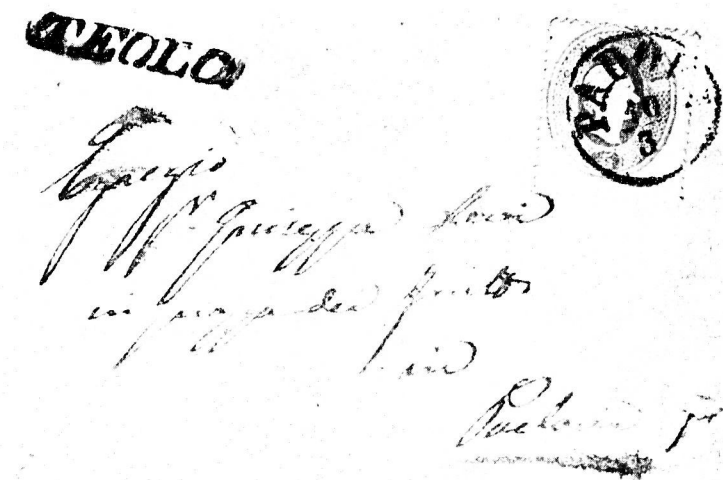 TEOLO
PADO
10
3
Egregio
Sr. Giuseppe
in piazza dei frutti
in
Padova